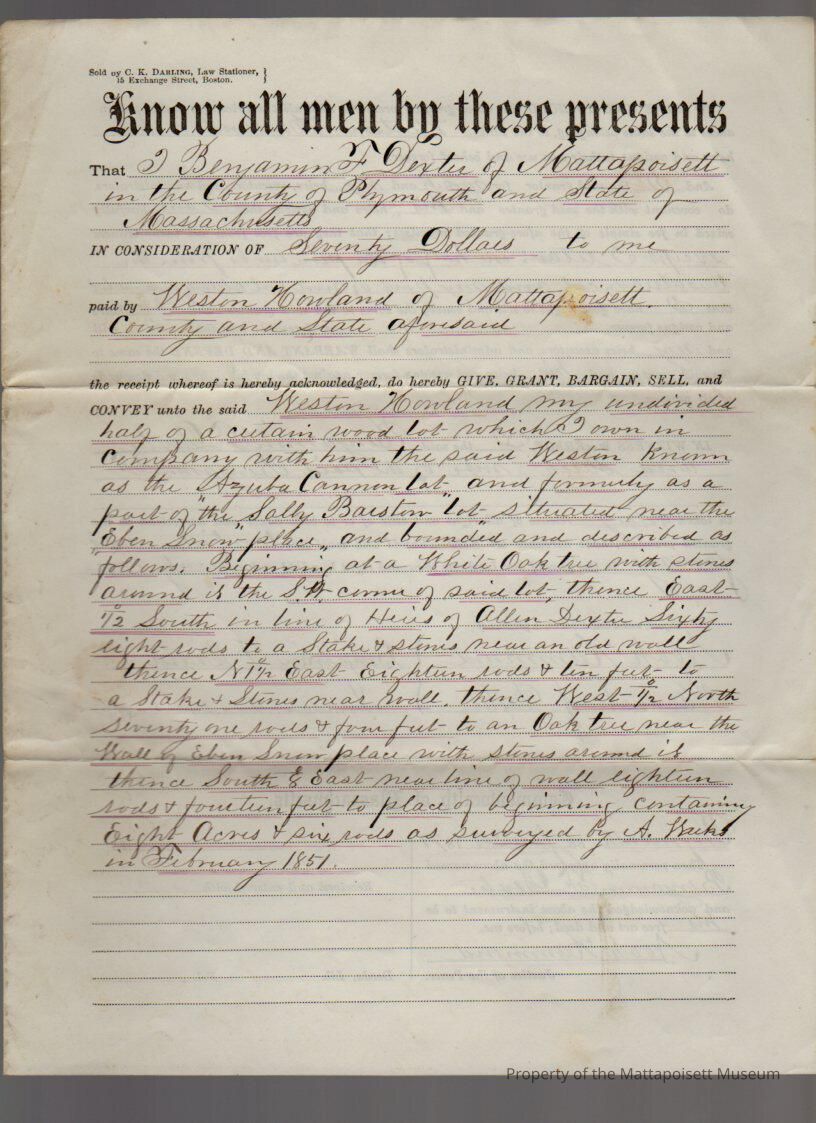 Sold by C. K. DARLING, Law Stationer, }
15 Exchange Street, Boston.
Know all men by these presents
That I Benjamin F Dexter of Mattapoisett
in the County of Plymouth and State of
Massachusetts
IN CONSIDERATION OF Seventy Dollars to me
paid by Weston Howland of Mattapoisett.
County and State aforesaid
the receipt whereof is hereby acknowledged, do hereby GIVE, GRANT, BARGAIN, SELL, and
CONVEY unto the said Weston Howland my undivided
half of a certain wood lot which I own in
Company with him the said Weston Known
as the Azuba Cannon lot and formerly as a
part of "the Sally Barstow" lot situated near the
"Eben Snow" place, and bounded and described as
follows. Beginning at a White Oak tree with stones
around it the S.W. corner of said lot, thence East
1/2° South in line of Heirs of Allen Dexter Sixty
eight rods to a Stake & stones near an old wall
thence N 1°1/2 East Eighteen rods & ten feet to
a Stake & Stones near wall. thence West 1/2° North
Seventy one rods & four feet to an Oak tree near the
Wall of Eben Snow place with stones around it
thence South East near line of wall eighteen
rods & fourteen feet to place of beginning containing
Eight Acres & six rods as surveyed by A.
in February 1851.
Property of the Mattapoisett Museum